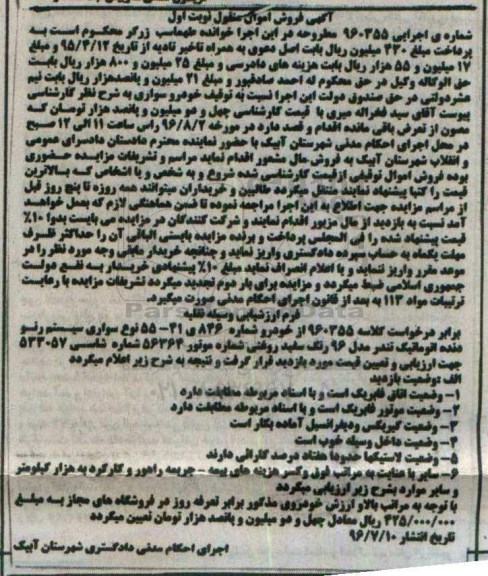 آگهی فروش اموال منقول نوبت اول
شماره ی اجرایی ۹۶۰۳۵۵ مطروحه در این اجرا خوانده طهماسب زرگر محکوم است به
پرداخت مبلغ ۴۳۰ میلیون ریال بابت اصل دعوی به همراه تاخیر تادیه از تاریخ ۹۵/۴/۱۲ و مبلغ
۱۷ میلیون و ۵۵ هزار ریال بابت هزینه های دادرسی و مبلغ ۲۵ میلیون و ۸۰۰ هزار ریال بابت
حق الوکاله وکیل در حق محکوم له احمد صادقپور و مبلغ ۲۱ میلیون و پانصدهزار ریال بابت نیم
عشردولتی در حق صندوق دولت این اجرا نسبت به توقیف خودرو سواری به شرح نظر کارشناسی
پیوست آقای سید فخراله میری با قیمت کارشناسی چهل و دو میلیون و پانصد هزار تومان که
مصون از تعرض باقی مانده اقدام و قصد دارد در مورخه ۹۶/۸/۲ راس ساعت ۱۱ الی ۱۲ صبح
در محل اجرای احکام مدنی شهرستان آبیک با حضور نماینده محترم دادستان دادسرای عمومی
و انقلاب شهرستان آبیک به فروش مال مشعور اقدام نماید مراسم و تشریفات مزایده حضوری
بوده فروش اموال توقیفی ازقیمت کارشناسی شده شروع و به شخص و یا اشخاص که بالاترین
قیمت را کتبا پیشنهاد نمایند منتقل میگردد طالبین و خریداران میتوانند همه روزه تا پنج روز قبل
از مراسم مزایده جهت اطلاع به این اجرا مراجعه نموده تا ضمن هماهنگی لازم که بعمل خواهد
آمد نسبت به بازدید از مال مزبور اقدام نمایند و شرکت کنندگان در مزایده می بایست بدوا ۱۰٪
قیمت پیشنهاد شده را فی المجلس پرداخت و برنده مزایده بایستی الباقی آن را حداکثر ظرف
مهلت یکماه به حساب سپرده دادگستری واریز نماید و چنانچه خریدار مابقی وجه مورد نظر را در
موعد مقرر واریز ننماید و یا اعلام انصراف نماید مبلغ ۱۰٪ پیشنهادی خریدار به نفع دولت
جمهوری اسلامی ضبط میگردد و مزایده برای بار دوم تجدید میگردد تشریفات مزایده با رعایت
ترتیبات مواد ۱۱۳ به بعد از قانون اجرای احکام مدنی صورت میگیرد.
فرم ارزشیابی وسیله نقلیه
برابر درخواست کلاسه ۹۶۰۳۵۵ از خودرو شماره ۸۳۶ ی ۲۱- ۵۵ نوع سواری سیستم رنو
دنده اتوماتیک تندر مدل ۹۶ رنگ سفید روغنی شماره موتور ۵۶۳۶۴ شماره شاسی ۵۳۳۰۵۷
جهت ارزیابی و تعیین قیمت مورد بازدید قرار گرفت و نتیجه به شرح زیر اعلام میگردد
الف :وضعیت بازدید
۱- وضعیت اتاق فابریک است و با اسناد مربوطه مطابقت دارد
۲- وضعیت موتور فابریک است و با اسناد مربوطه مطابقت دارد
۳- وضعیت گیربکس ودیفرانسیل آماده بکار است
۴- وضعیت داخل وسیله خوب است
۵- وضعیت لاستیکها حدودا هفتاد درصد کارائی دارند
۶- سایر با عنایت به مراتب فوق وکسر هزینه های بیمه – جریمه راهور و کارکرد به هزار کیلومتر
و سایر موارد بشرح زیر ارزیابی میگردد
با توجه به مراتب بالاو ارزش خودروی مذکور برابر تعرفه روز در فروشگاه های مجاز به مبلغ
۴۲۵/۰۰۰/۰۰۰ ریال معادل چهل و دو میلیون و پانصد هزار تومان تعیین میگردد
تاریخ انتشار ۹۶/۷/۱۰
اجرای احکام مدنی دادگستری شهرستان آبیک